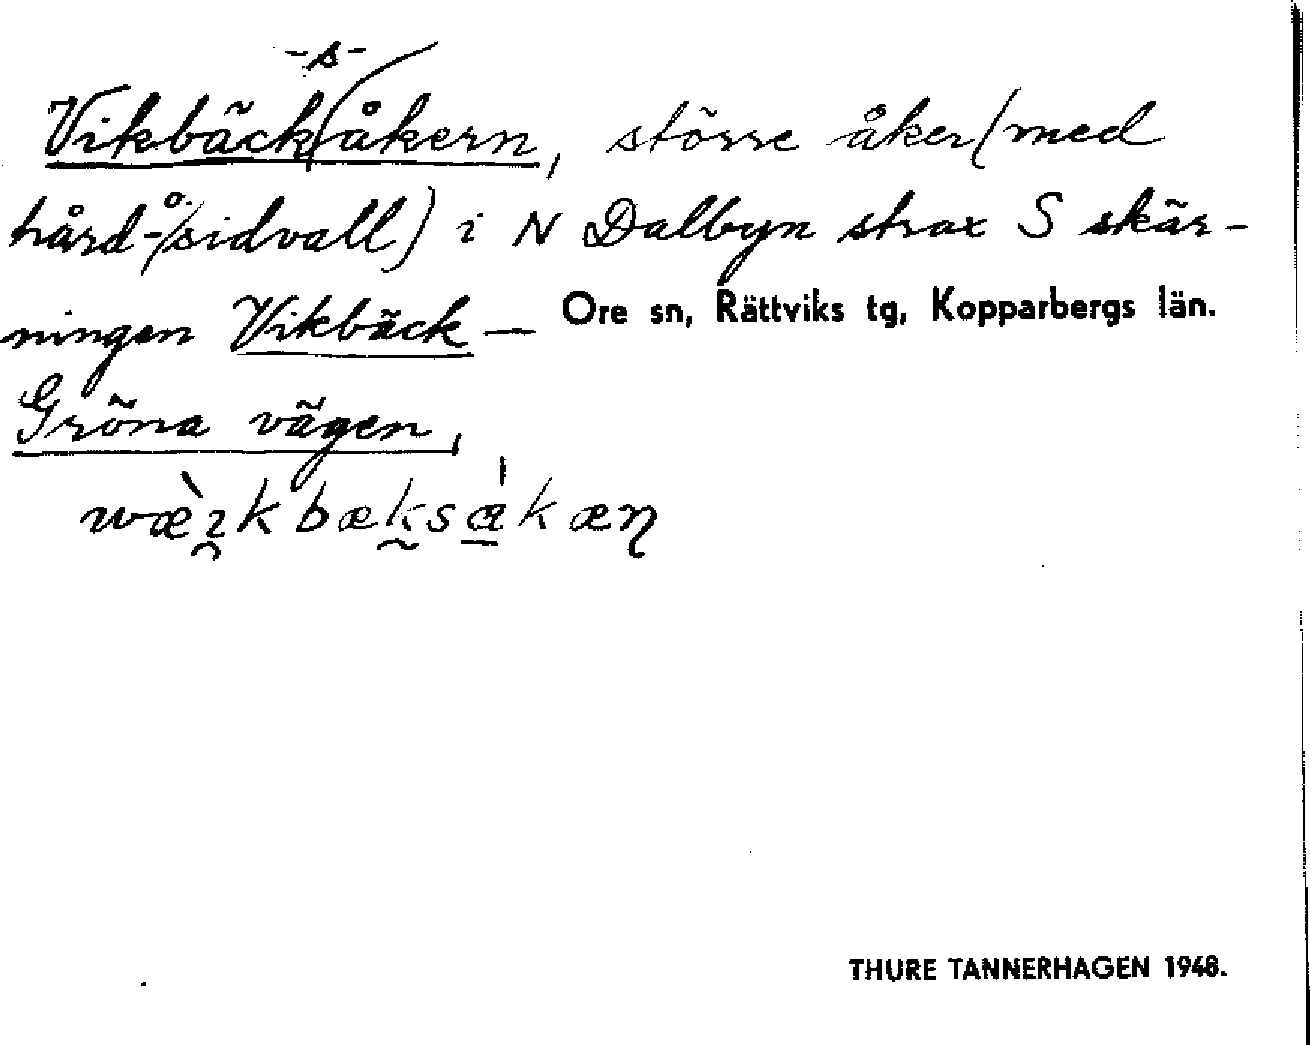 -s-
Vikbäck/åkern, större åker (med
hård- o. sidvall) i N Dalbyn strax S skär-
ningen Vikbäck — Ore sn, Rättviks tg, Kopparbergs län.
Gröna vägen,
THURE TANNERHAGEN 1948.